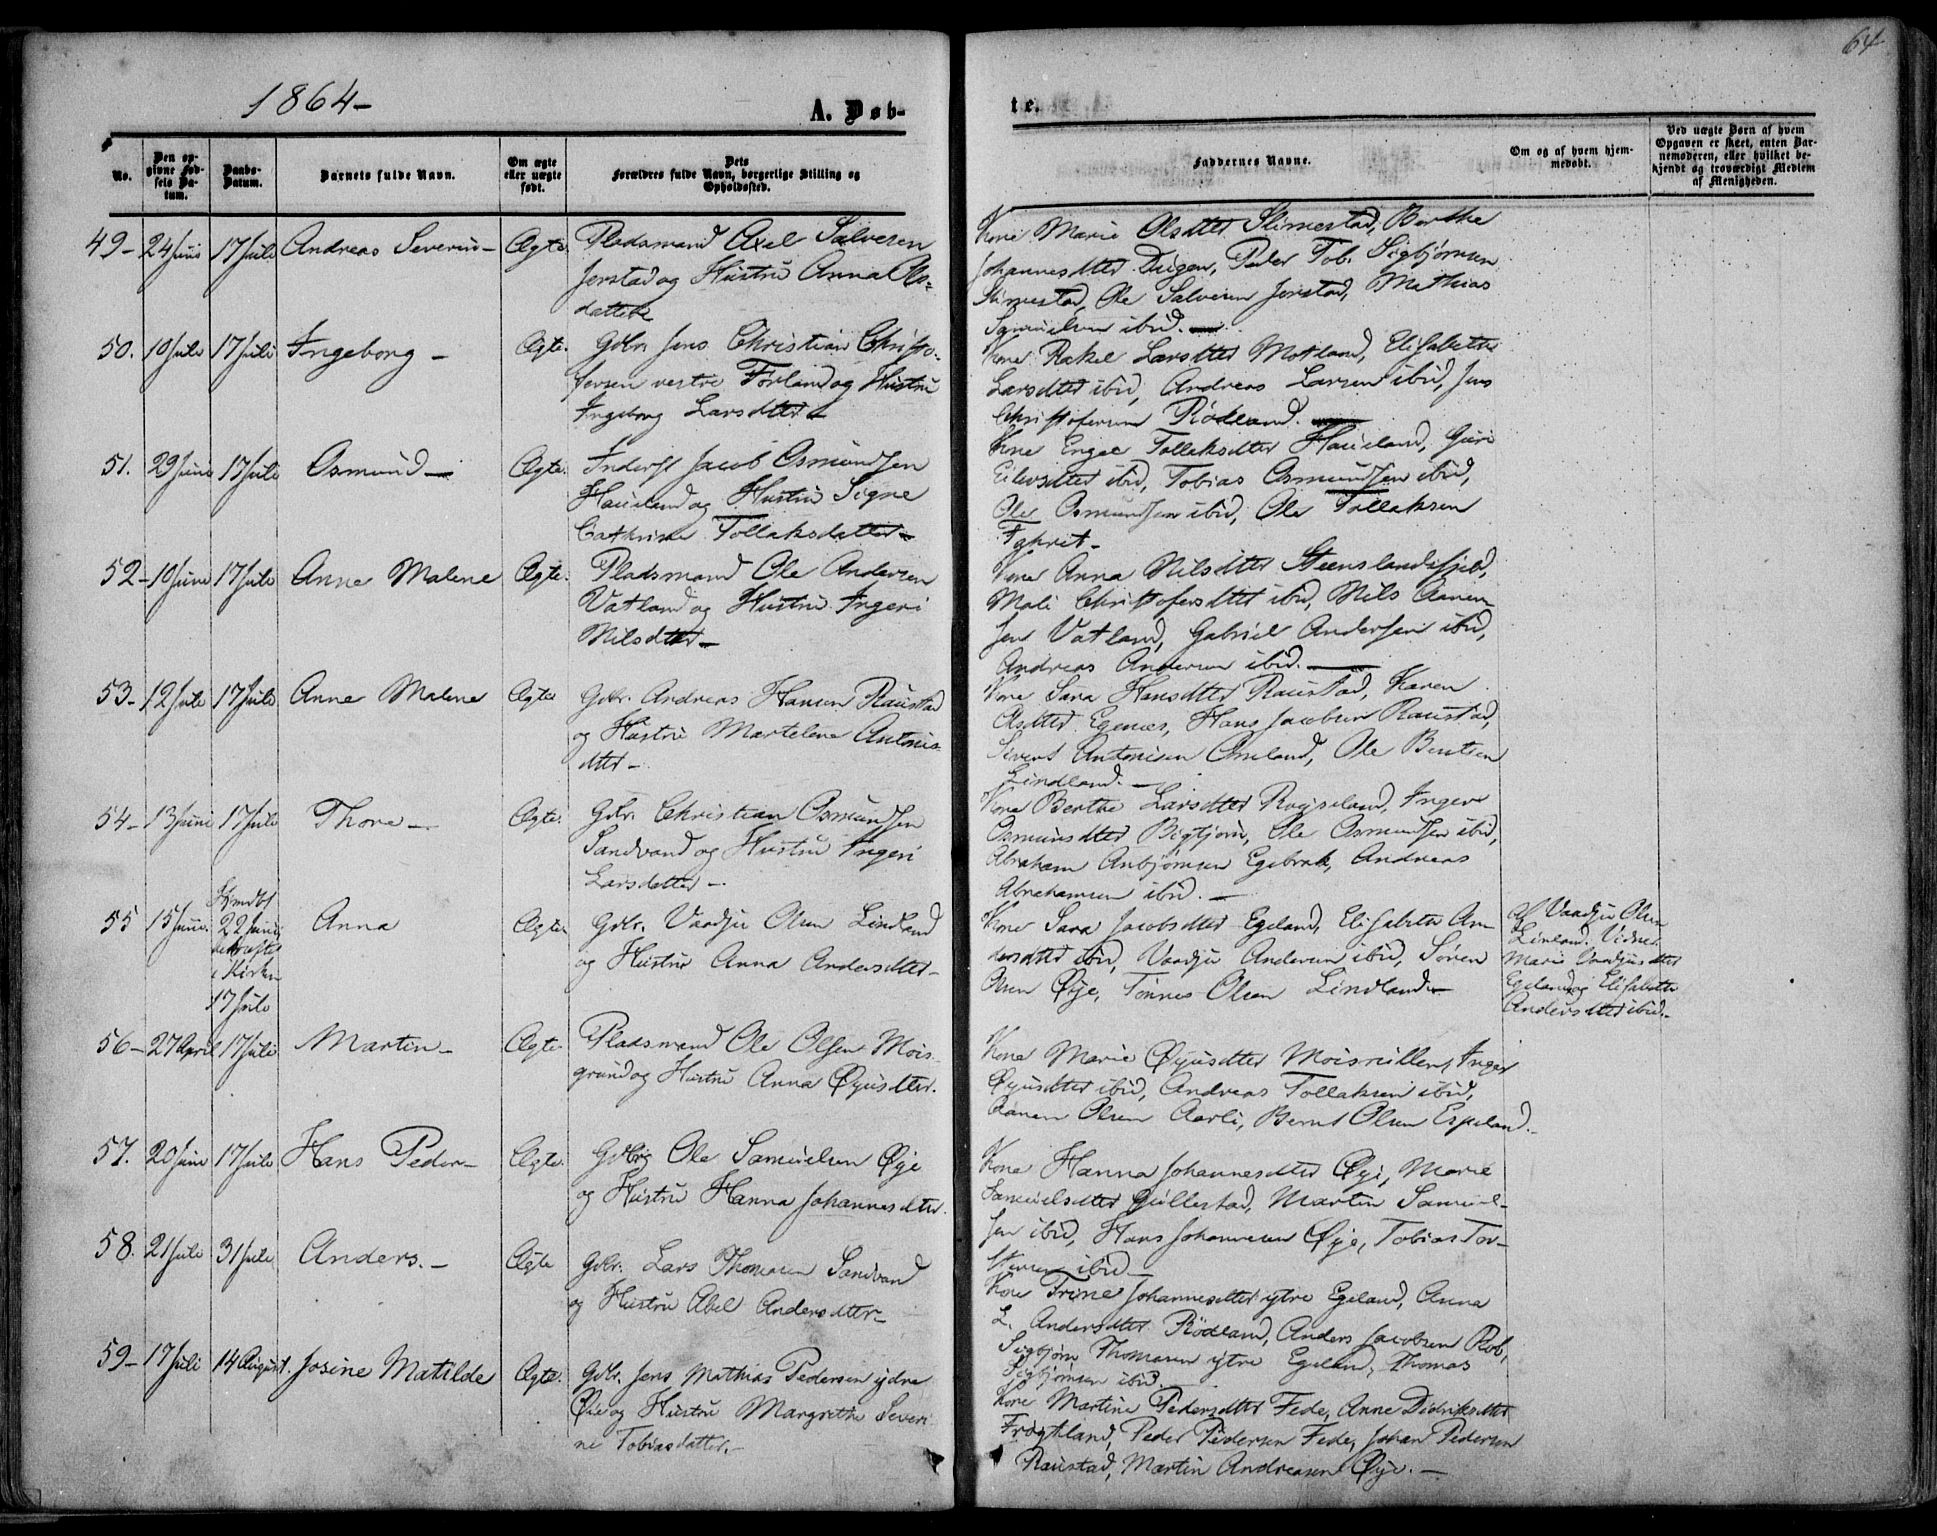 64
1864-
A. Døb-
te.
No.
Den op-
givne Fød-
sels Da-
tum.
Daabs-
Datum.
Barnets fulde Navn.
Om ægte
eller uægte
født.
Dets
Forældres fulde Navn, borgerlige Stilling og
Opholdssted.
Faddernes Navne.
Om og af hvem hjem-
medøbt.
Ved uægte Børn af hvem
Opgaven er skeet, enten Bar-
nemoderen, eller hvilket be-
kjendt og troværdigt Medlem
af Menigheden.
49- 24 Juni 17 Juli Andreas Severin- Ægte. Pladsmand Axel Salvesen
Jerstad og Hustru Anna Ols-
datter
Kone Marie Olsdtter Slimestad, Berthe
Johannesdtter Dugen, Peder Tob. Sigbjørnsen
Slimestad, Ole Salvesen Jerstad, Mathias
Samuelsen ibid.
50. 10 Juli 17 Juli Ingeborg - Ægte. Gdbr. Jens Christian Christo-
fersen vestre Førland og Hustru
Ingeborg Larsdtter
Kone Rakel Larsdtter Motland, Elisabeth
Larsdtter ibid, Andreas Larsen ibid, Jens
Christofersen Rødland.
51. 29 Juni 17 Juli Osmund- Ægte. Inderst Jacob Osmundsen
Haueland og Hustru Signe
Cathrine Tollaksdatter-
Kone Engel Tollaksdtter Haueland, Guri
Eilevsdtter ibid, Tobias Osmundsen ibid,
Ole Osmundsen ibid, Ole Tollaksen

52- 10 Juni 17 Juli Anne Malene Ægte. Pladsmand Ole Andersen
Vatland og Hustru Ingeri
Nilsdtter-
Kone Anna Nilsdtter Steenslandsfjeld,
Mali Christofersdtter ibid, Nils Aanen-
sen Vatland, Gabriel Andersen ibid,
Andreas Andersen ibid.
53- 12 Juli 17 Juli Anne Malene Ægte Gdbr. Andreas Hansen Raustad
og Hustru Martelene Antonis-
dtter-
Kone Sara Hansdtter Raustad, Karen
Olsdtter Egenæs, Hans Jacobsen Raustad,
Sivert Antonisen Omland, Ole Bentsen
Lindland.-
54- 13 Juni 17 Juli Thore- Ægte. Gdbr. Christian Osmundsen
Sandvand og Hustru Ingeri
Larsdatter-
Kone Berthe Larsdtter Røyseland, Inger
Osmundsdtter Bigtjørn, Ole Osmundsen ibid,
Abraham Anbjørnsen Egebrok, Andreas
Abrahamsen ibid.-
55 15 Juni. Hjmdbt
22 Juni
bekræftet
i Kirken
17 Juli
Anna Ægte. Gdbr. Vaadju Olsen Lindland
og Hustru Anna Andersdtter-
Kone Sara Jacobsdtter Egeland, Elisabeth An-
dersdtter ibid, Vaadju Andersen ibid, Søren
Olsen Øye, Tønnes Olsen Lindland-
Af Vaadju Olsen
Linland. Vidner
Marie Vaadjusdtter
Egeland og Elisabeth
Andersdtter ibid.-
56- 27 April 17 Juli Martin- Ægte. Pladsmand Ole Olsen Mois-
grund og Hustru Anna Øyusdtter.
Kone Marie Øyusdtter Moismillen, Inger
Øyusdtter ibid, Andreas Tollaksen ibid,
Aanen Olsen Aarli, Bernt Olsen Espeland.-
57. 20 Juni 17 Juli Hans Peder- Ægte. Gdbr. Ole Samuelsen Øye
og Hustru Hanna Johannesdtter.
Kone Hanna Johannesdtter Øye, Marie
Samuelsdtter Gullestad, Martin Samuel-
sen ibid, Hans Johannesen Øye, Tobias Tor-
stensen ibid-
58. 21 Juli 31 Juli Anders.- Ægte Gdbr. Lars Thomasen Sandvand
og Hustru Abel Andersdtter-
Kone Trine Johannesdtter ytre Egeland, Anna
L. Andersdtter Rødland, Anders Jacobsen Rob,
Sigbjørn Thomasen ytre Egeland, Thomas
Sigbjørnsen ibid.
59- 17 Juli 14 August. Josine Matilde Ægte. Gdbr. Jens Mathias Pedersen ydre
Øie og Hustru Margrethe Severi-
ne Tobiasdatter.-
Kone Martine Pedersdtter Fede, Anne Didriksdtter
Frøytland, Peder Pedersen Fede, Johan Pedersen
Raustad, Martin Andreasen Øye.-